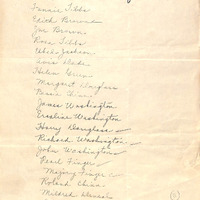 Fannie Tibbs
Edith Browne
Joe Browne
Rosa Tibbs
Jackson
Lois Wade
Helen
Margaret Douglass
Bessie
James Washington
Ersaline Washington
Harry Douglass
Richard Washington
John Washington
Pearl Finger
Finger
Roland
Mildred